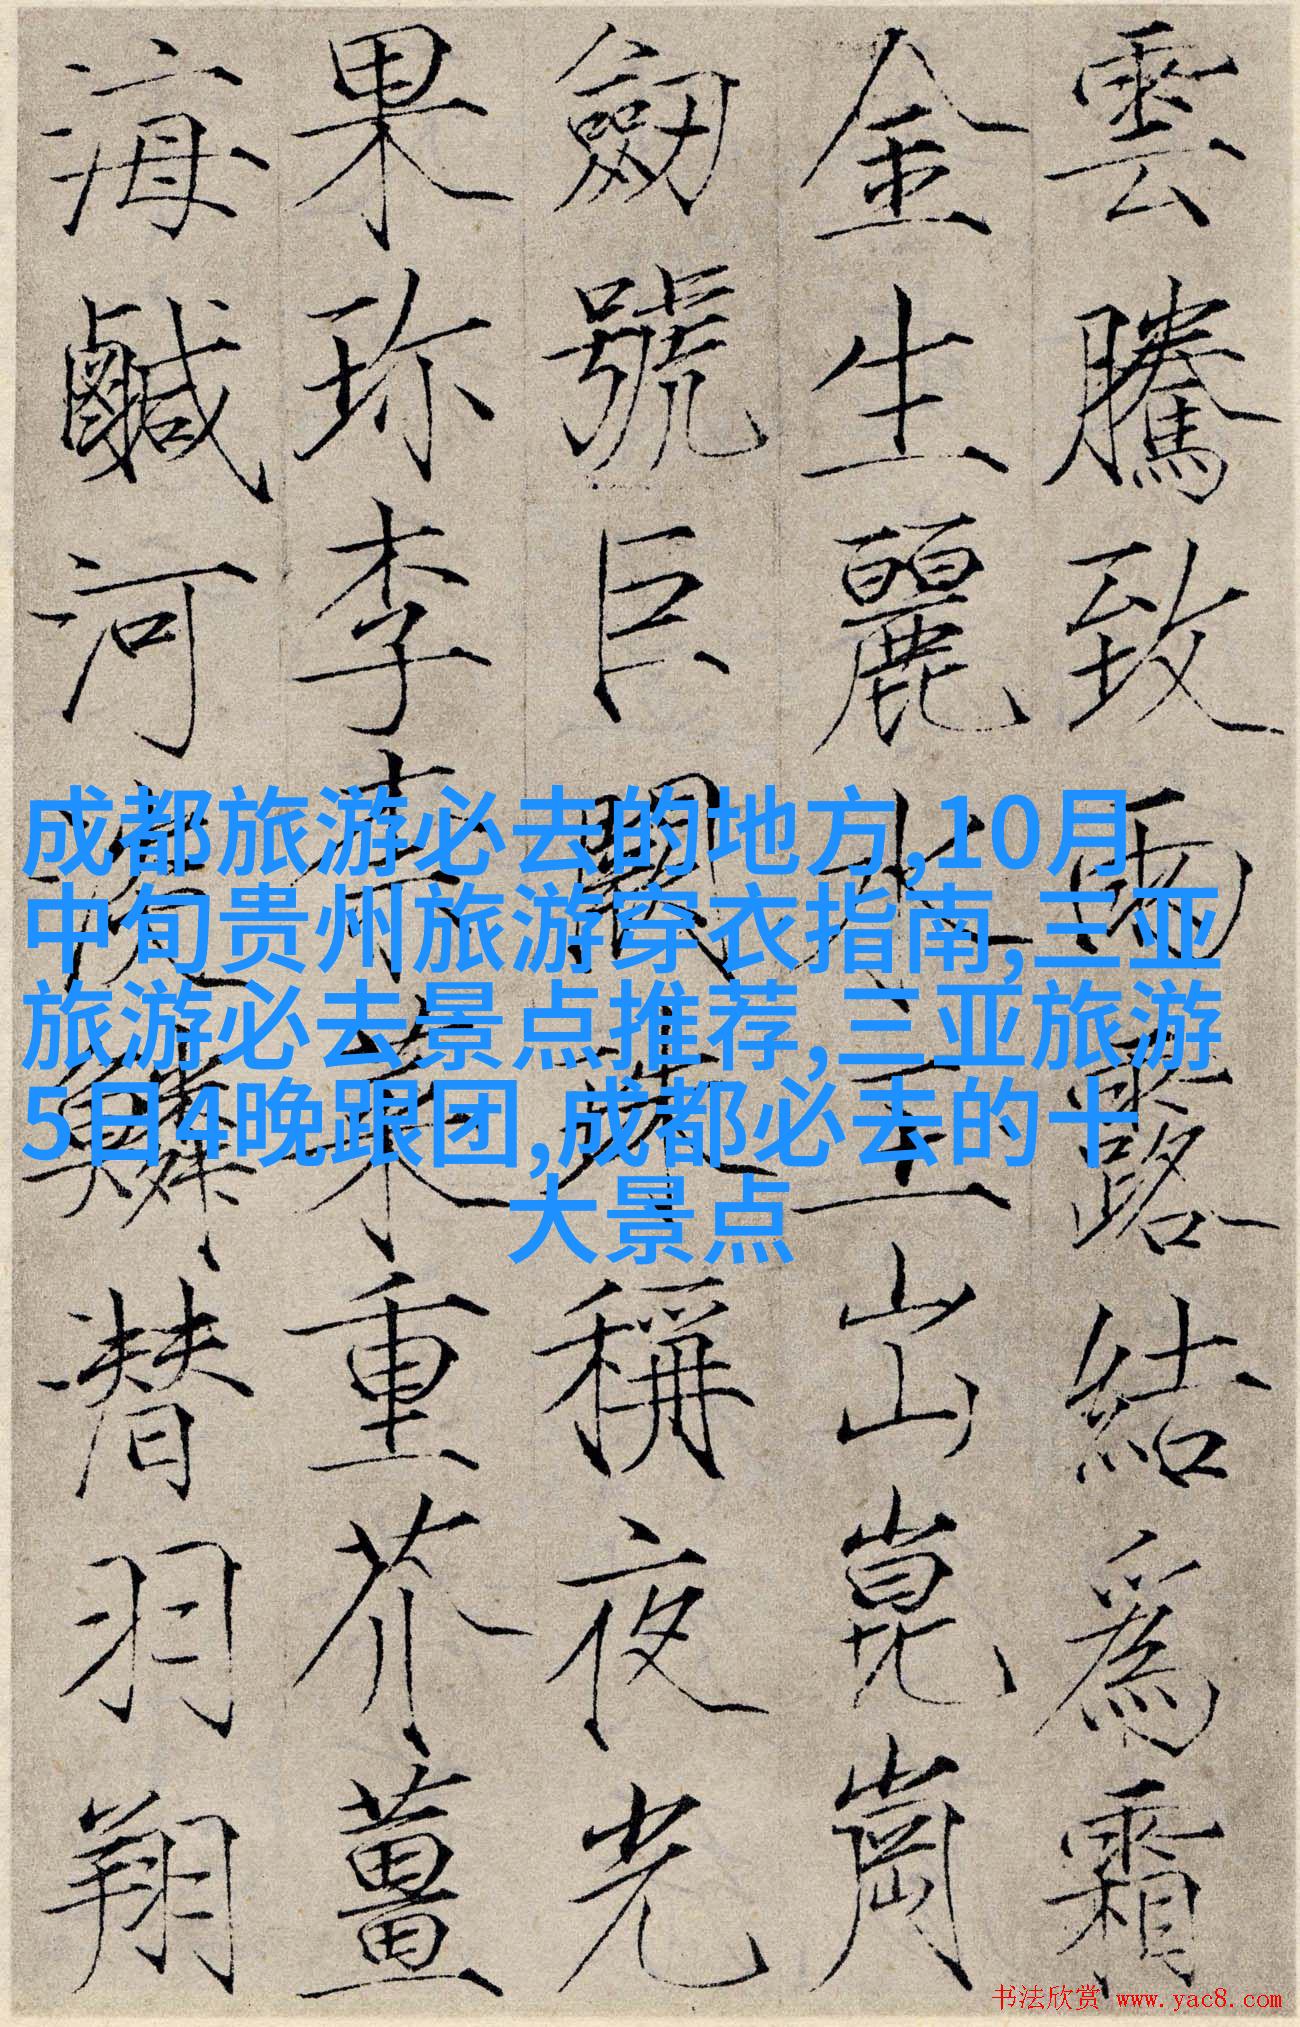 雲騰致雨露結爲霜
金生麗水玉出崑崗
劒號巨闕珠稱夜光
果珎李柰菜重芥薑
海鹹河淡鱗潜羽翔
成都旅游必去的地方,10月
中旬贵州旅游穿衣指南,三亚
旅游必去景点推荐,三亚旅游
5日4晚跟团,成都必去的十
大景点
书法欣赏 www.yac8.com